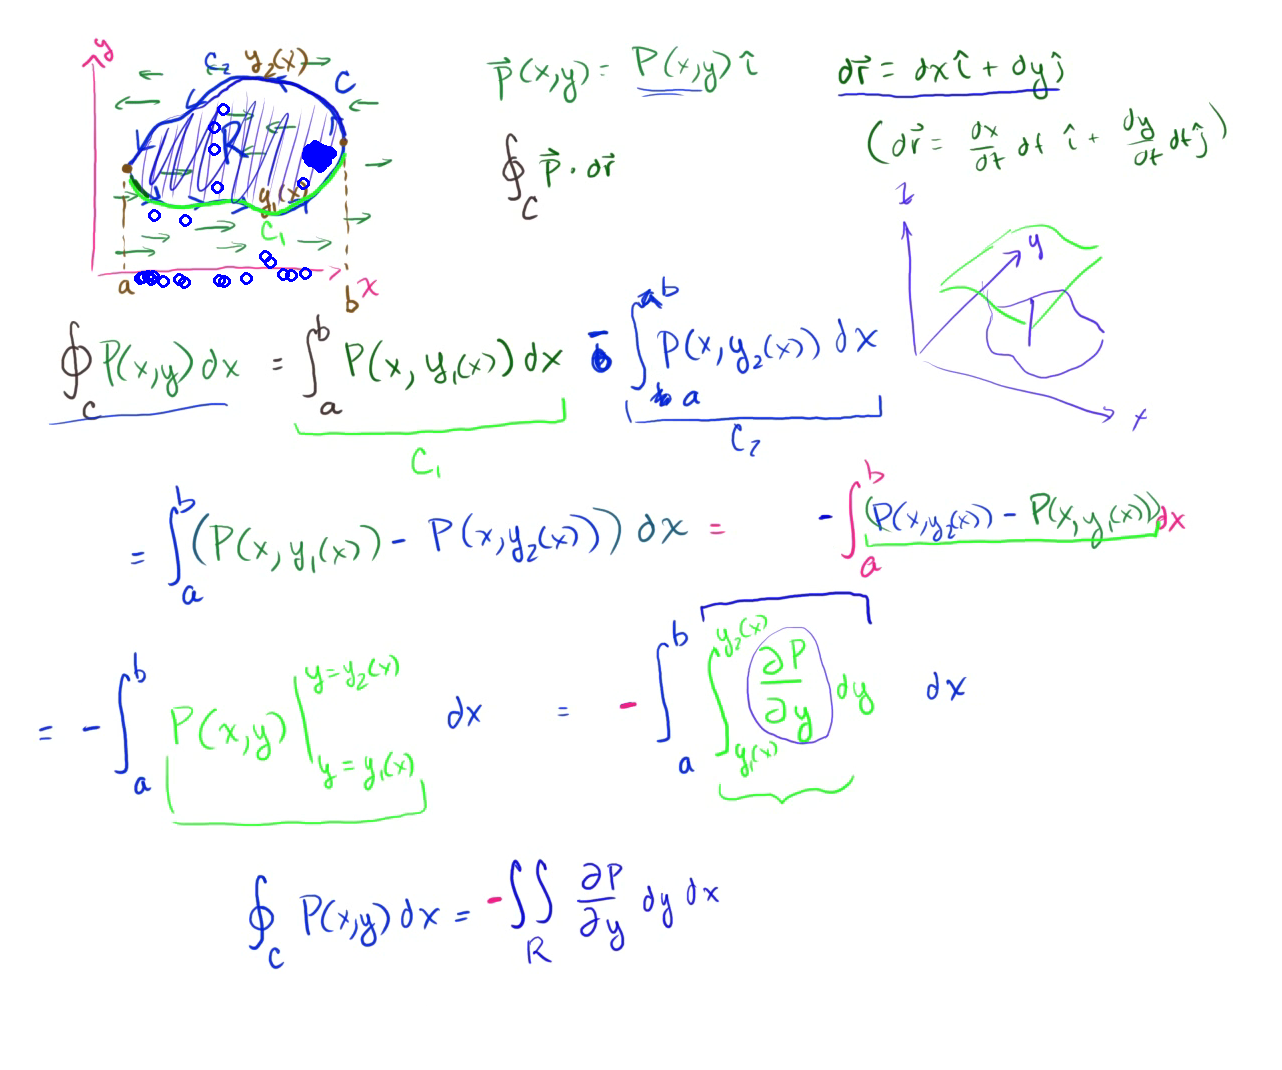 y
C₂ y₂(x)
C
R
y₁(x)
C₁
a b x
P⃗(x,y) = P(x,y) î
dr⃗ = dx î + dy ĵ
(dr⃗ = dx/dt dt î + dy/dt dt ĵ)
∮_C P⃗ · dr⃗
z
y
x
∮_C P(x,y) dx = ∫_a^b P(x, y₁(x)) dx - ∫_a^b P(x, y₂(x)) dx
C₁ C₂
= ∫_a^b (P(x, y₁(x)) - P(x, y₂(x))) dx = - ∫_a^b (P(x, y₂(x)) - P(x, y₁(x))) dx
= - ∫_a^b P(x,y) |_{y = y₁(x)}^{y = y₂(x)} dx = - ∫_a^b ∫_{y₁(x)}^{y₂(x)} ∂P/∂y dy dx
∮_C P(x,y) dx = - ∫∫_R ∂P/∂y dy dx